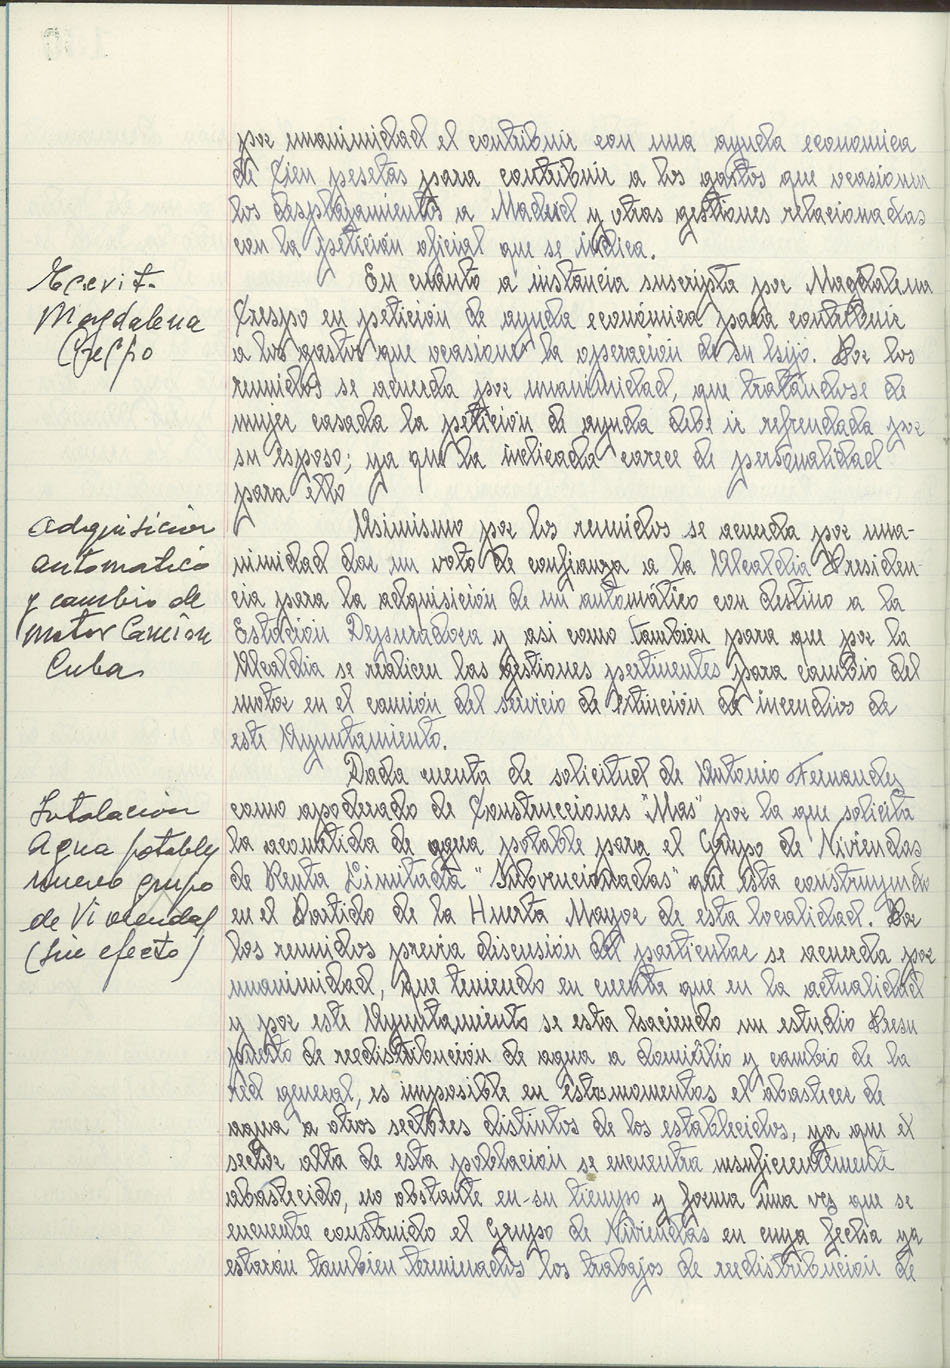 por unanimidad el contribuir con una ayuda economica
de Cien pesetas para contribuir a los gastos que ocasionen
los desplazamientos a Madrid y otras gestiones relacionadas
con la petición oficial que se indica.
Escrit.
Magdalena
Crespo
En cuanto a instancia suscripta por Magdalena
Crespo en petición de ayuda económica para contribuir
a los gastos que ocasione la operación de su hijo. Por los
reunidos se acuerda por unanimidad, que tratándose de
mujer casada la petición de ayuda debe ir refrendada por
su esposo; ya que la indicada carece de personalidad
para ello
Adquisicion
automatico
y cambio de
motor Camión
Cuba
Asimismo por los reunidos se acuerda por una-
nimidad dar un voto de confianza a la Alcaldia Presiden-
cia para la adquisición de un automático con destino a la
Estación Depuradora y asi como tambien para que por la
Alcaldia se realicen las gestiones pertinentes para cambio del
motor en el camión del servicio de extinción de incendios de
este Ayuntamiento.
Intalacion
Agua potable
nuevo grupo
de Viviendas
(sin efecto)
Dada cuenta de solicitud de Antonio Fernandez
como apoderado de Construcciones "Mas" por la que solicita
la acometida de agua potable para el Grupo de Viviendas
de Renta Limitada "Subvencionadas" que esta construyendo
en el Partido de la Huerta Mayor de esta localidad. Por
los reunidos previa discusión del particular se acuerda por
unanimidad, que teniendo en cuenta que en la actualidad
y por este Ayuntamiento se esta haciendo un estudio Presu
puesto de redistribución de agua a domicilio y cambio de la
red general, es imposible en estos momentos el abastecer de
agua a otros sectores distintos de los establecidos, ya que el
sector alta de esta población se encuentra insuficientemente
abastecido, no obstante en su tiempo y forma una vez que se
encuentre construido el Grupo de Viviendas en cuya fecha ya
estarán tambien terminados los trabajos de redistribución de